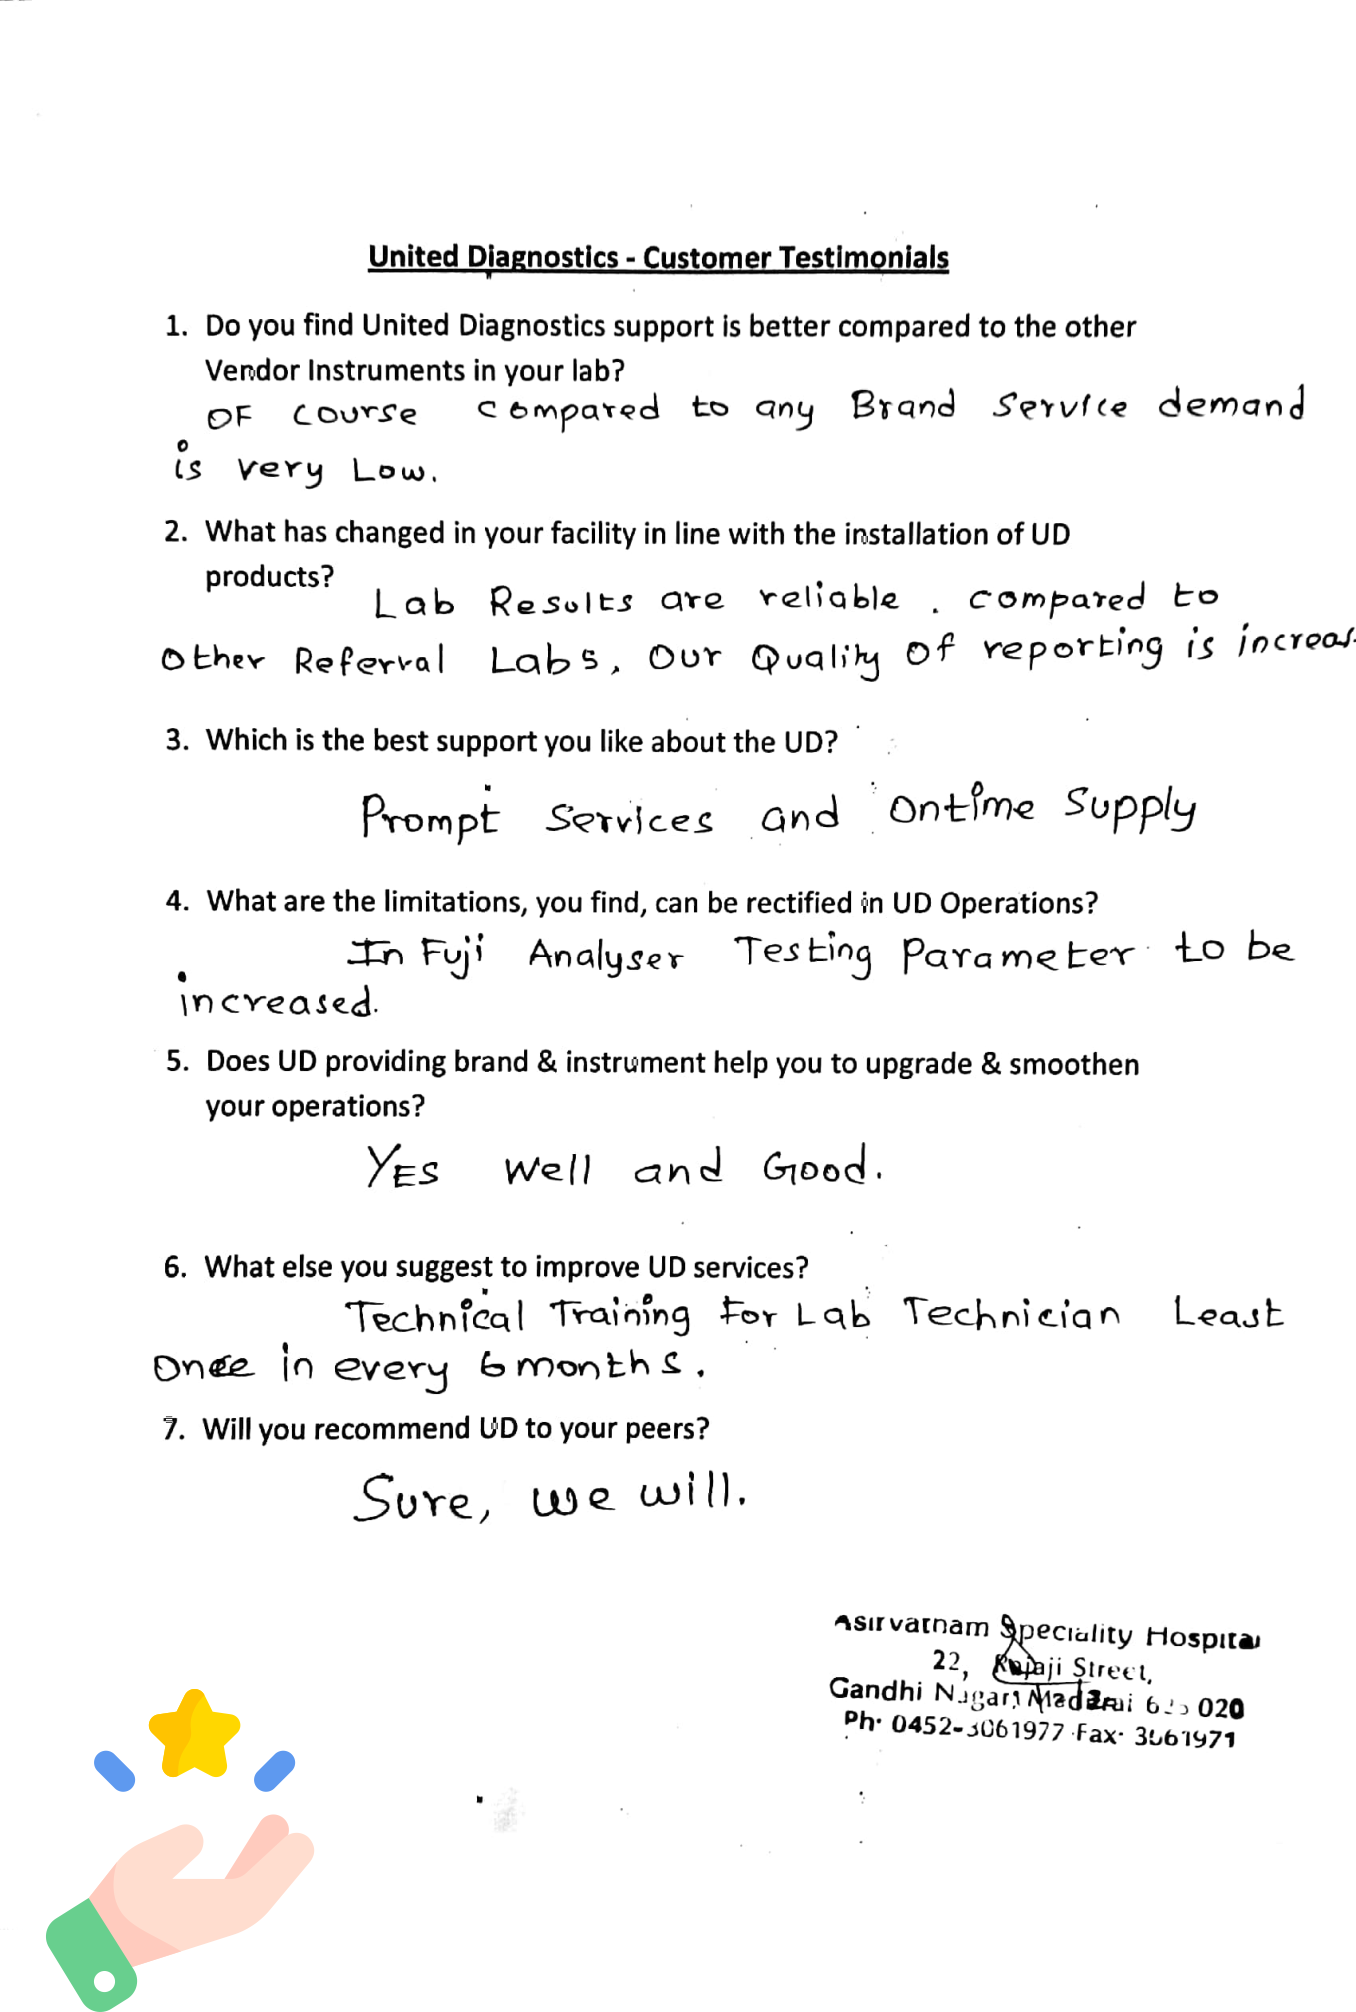 United Diagnostics - Customer Testimonials
1. Do you find United Diagnostics support is better compared to the other
Vendor Instruments in your lab?
OF course compared to any Brand Service demand
is very Low.
2. What has changed in your facility in line with the installation of UD
products?
Lab Results are reliable. compared to
Other Referral Labs, Our Quality of reporting is increas
3. Which is the best support you like about the UD?
Prompt Services and Ontime Supply
4. What are the limitations, you find, can be rectified in UD Operations?
In Fuji Analyser Testing Parameter to be
increased.
5. Does UD providing brand & instrument help you to upgrade & smoothen
your operations?
YES Well and Good.
6. What else you suggest to improve UD services?
Technical Training For Lab Technician Least
Once in every 6 months.
7. Will you recommend UD to your peers?
Sure, we will.
Speciality Hospital
22, Street,
Gandhi Nagar, 020
Ph: 0452-3061977 Fax: 3061971